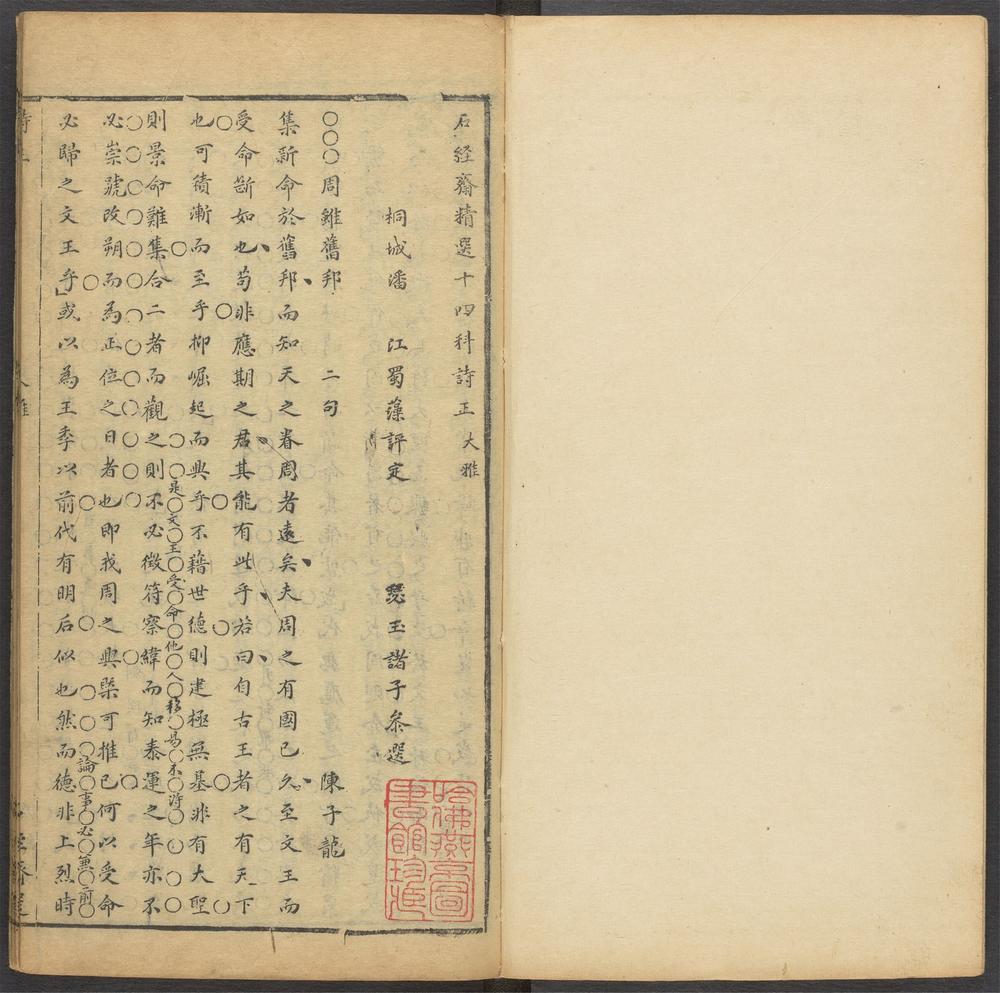 石経齋精選十四科詩正 大雅
桐城潘 江蜀藻評定 瑟玉諸子叅選
○○○周雖舊邦 二句 陳子龍
集新命於舊邦而知天之眷周者遠矣夫周之有國已久至文王而
受命斷如也苟非應期之君其能有此乎若曰自古王者之有天下
也可積漸而至乎抑崛起而興乎不藉世德則建極無基非有大聖
是文王受命他人移易不得
則景命難集合二者而觀之則不必徵符察緯而知泰運之年亦不
必崇號改朔而為正位之日者也即我周之興槩可推已何以受命
論事必兼前
必歸之文王乎或以為王季以前代有明后似也然而德非上烈時
哈佛燕京圖
書館珍藏